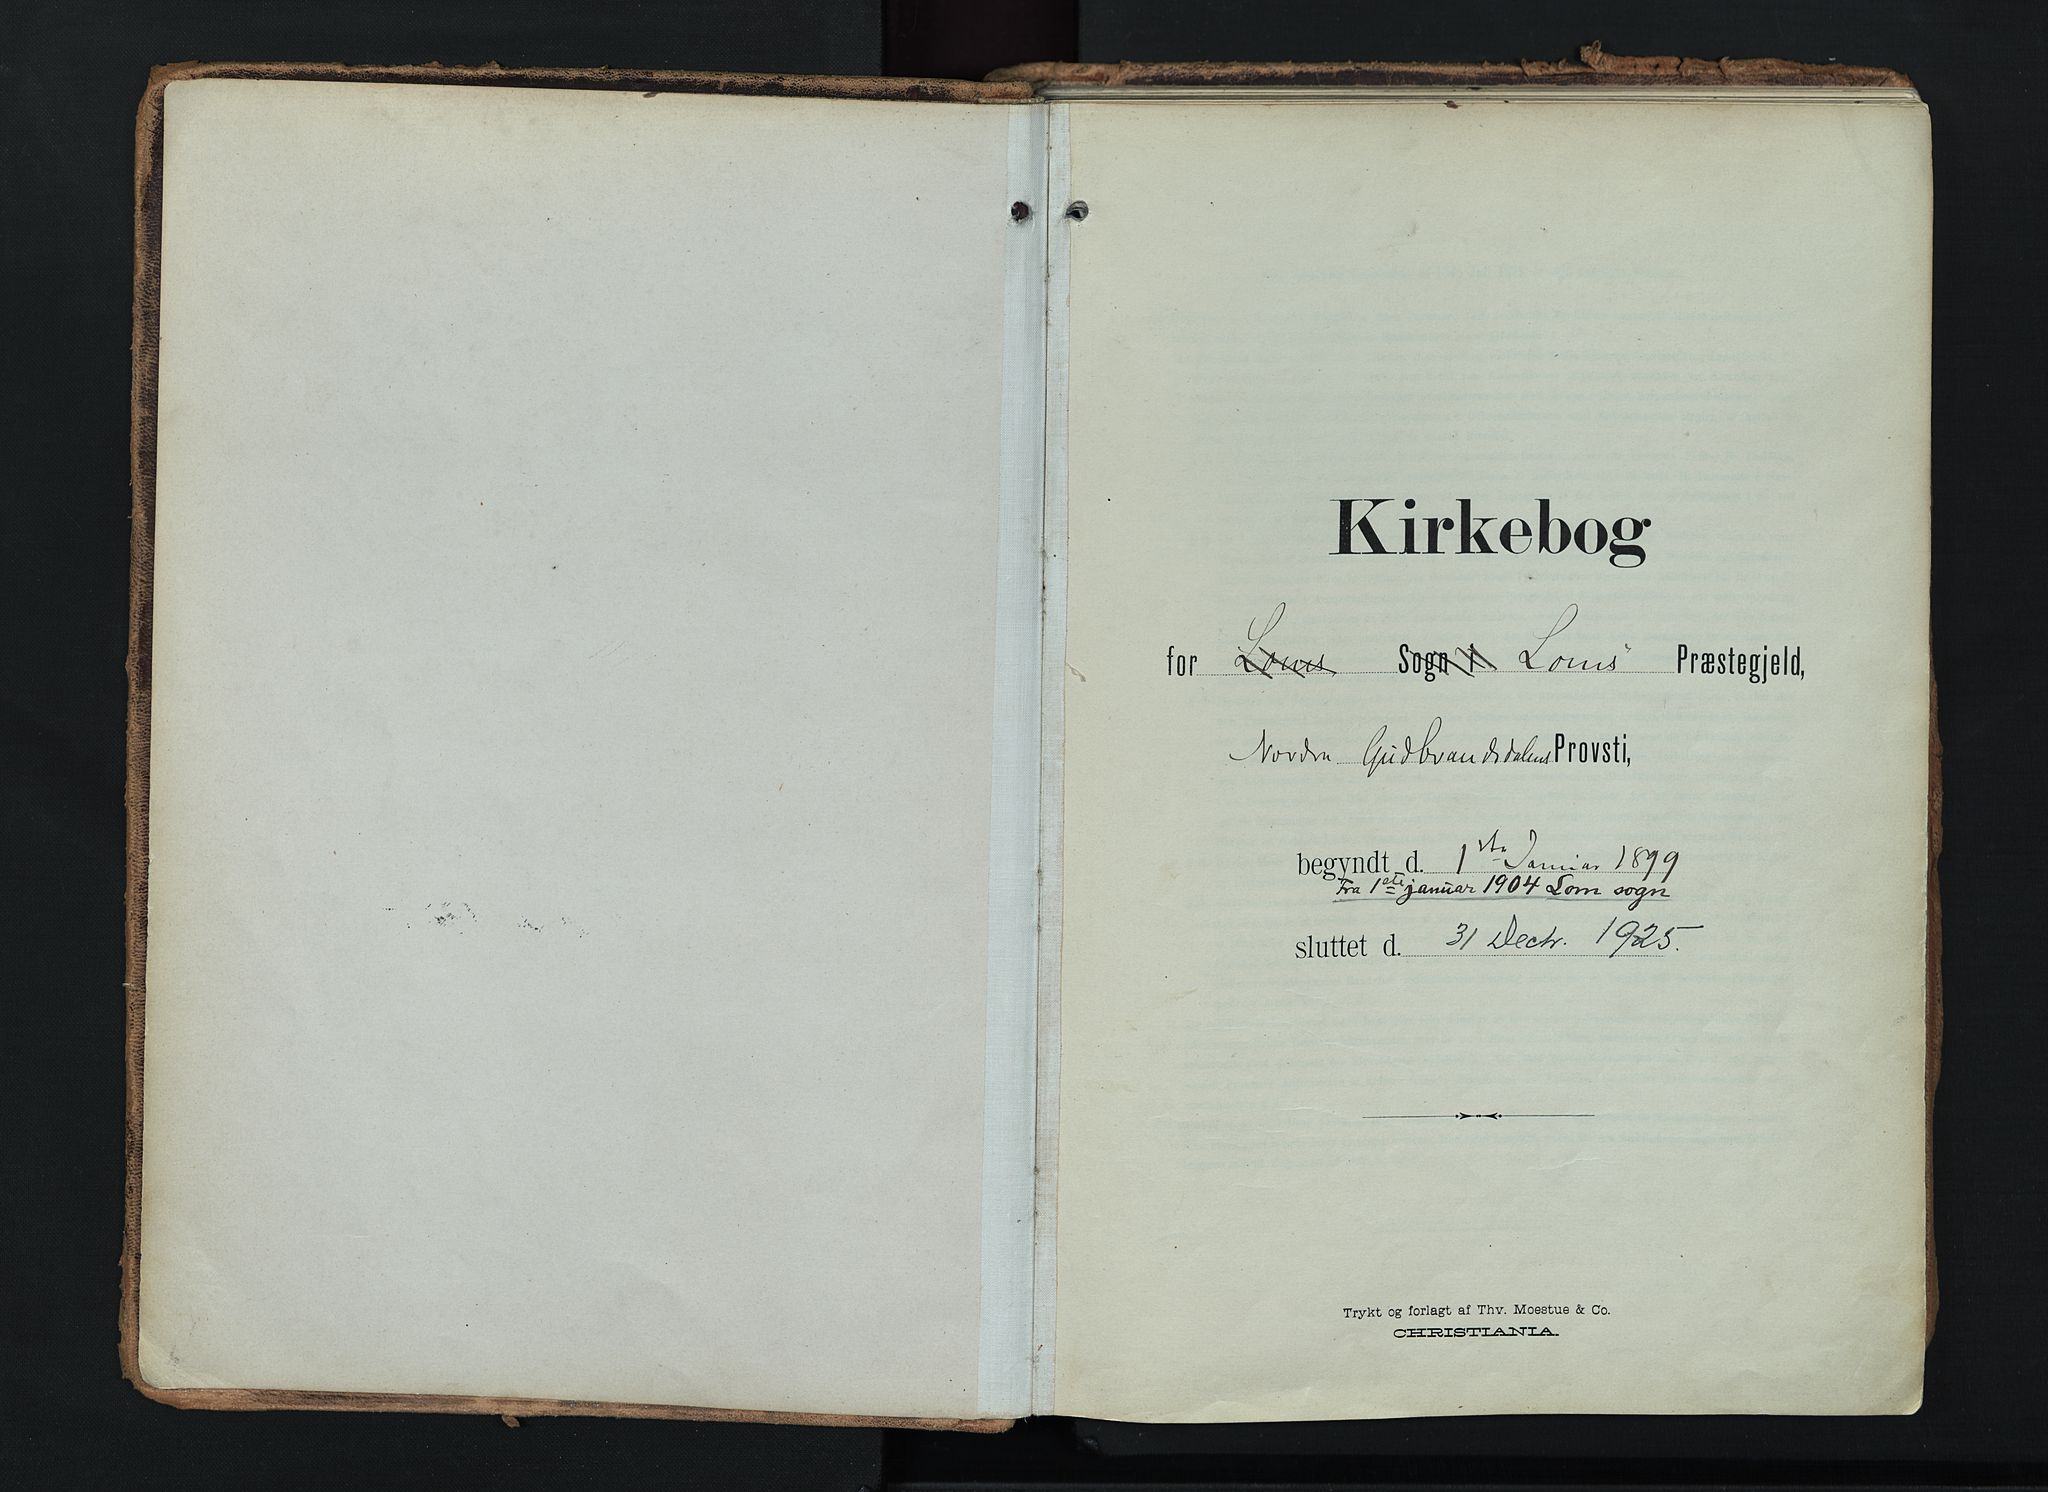 Kirkebog
for Loms Sogn i Loms Præstegjeld,
Nordre Gudbrandsdalens Provsti,
begyndt d. 1ste Januar 1899
Fra 1ste januar 1904 Lom sogn
sluttet d. 31 Decbr. 1925.
Trykt og forlagt af Thv. Moestue & Co.
CHRISTIANIA.